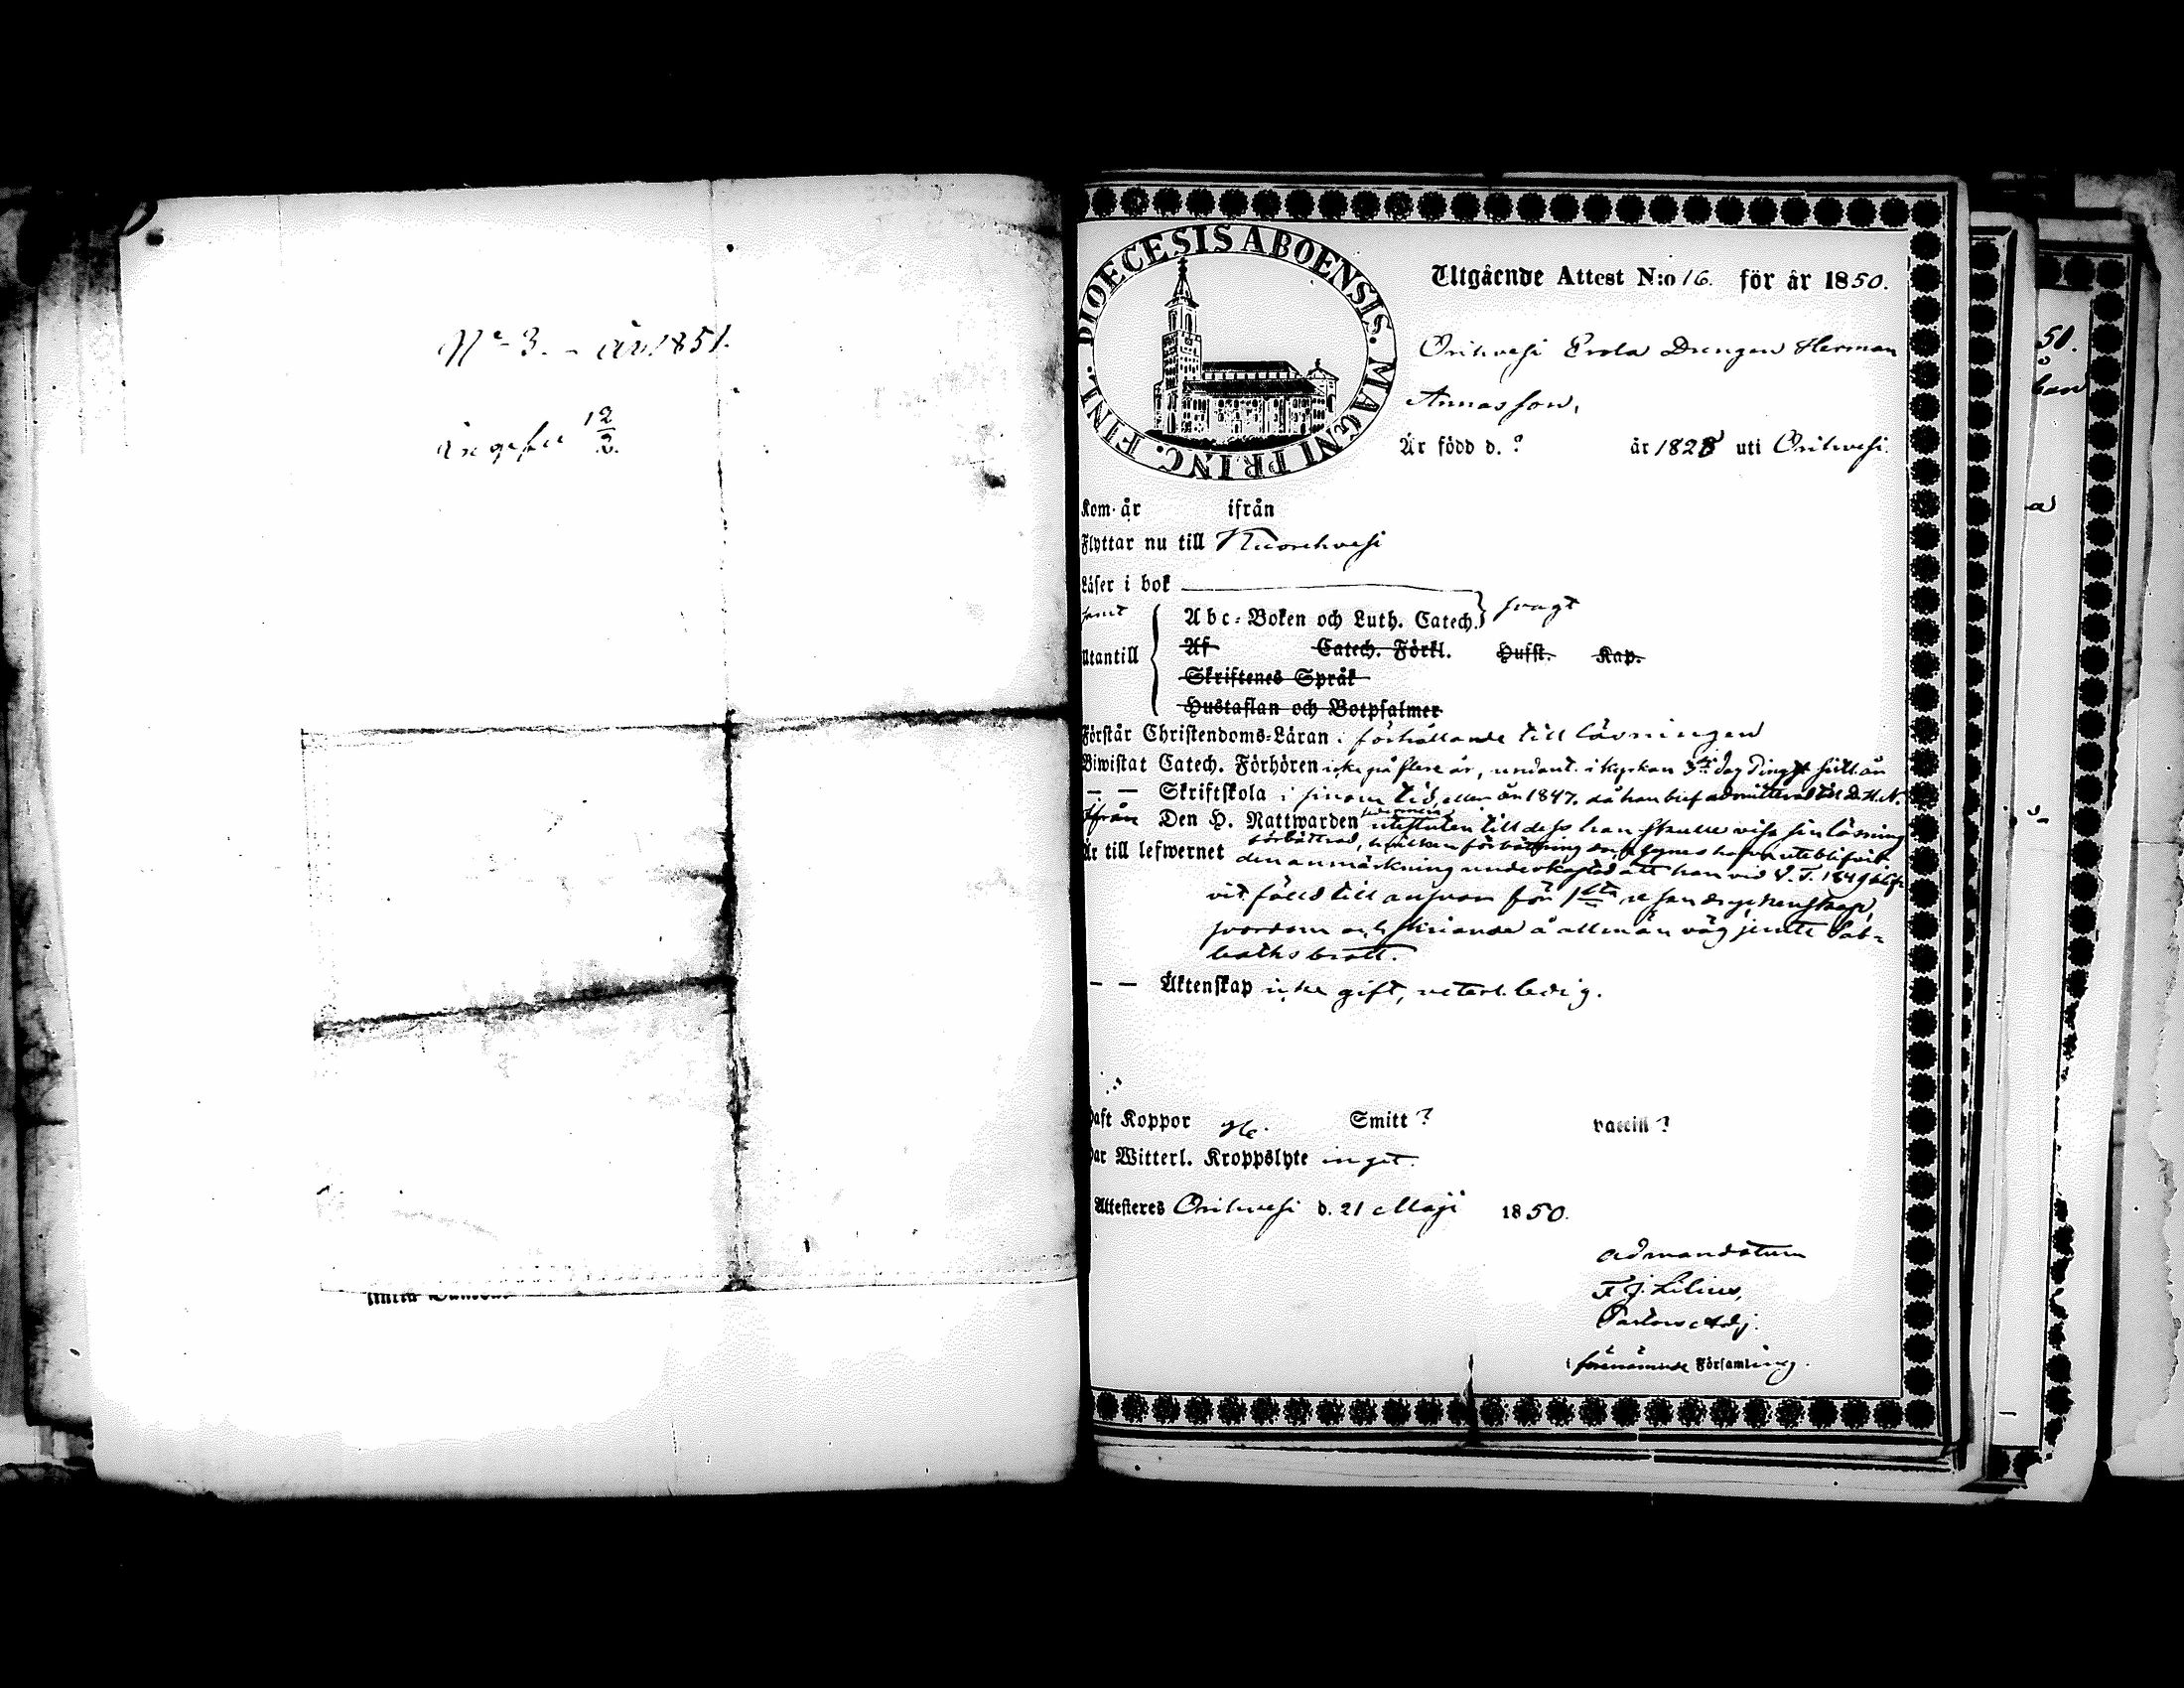 No 3. - år 1851.
12/2.
DIOECESIS ABOENSIS. MAGNI PRINC. FINL.
Utgående Attest N:o 16. för år 1850.
Orihvesi Erola Drengen Herman
Annasson,
Är född d. ? år 1828 uti Orihvesi.
Kom år ifrån
Flyttar nu till Kuorehvesi
Läser i bok
samt Abc-Boken och Luth. Catech. svagt
Utantill Af Catech. Förkl. Husst. Kap.
Skriftenes Språk
Hustaflan och Botpsalmer
Förstår Christendoms-Läran i förhållande till läsningen
Biwistat Catech. Förhören icke på flere år, undant. i kyrkan dag Pingst sistl. år
— — Skriftskola i sinom tid, eller år 1847, då han blef admitterad till D. H. N.
Ifrån Den H. Nattwarden utesluten till dess han skulle visa sin läsning
förbättrad, hvilken förbättring dock synes hafva uteblifvit
Är till lefwernet den anmärkning underkastad, att han vid V. T. 1849 blif-
vit fälld till ansvar för 1sta resan
svordom och skriande å allmän väg jemte Sab-
bathsbrott.
— — Äktenskap icke gift, veterl. ledig.
Haft Koppor Smitt ? vaccin ?
Har Witterl. Kroppslyte inget.
Attesteres Orihvesi d. 21 Maji 1850.
ad mandatum
F. J. Lilius,
Pastors Adj.
i förenämnde Församling.
51.